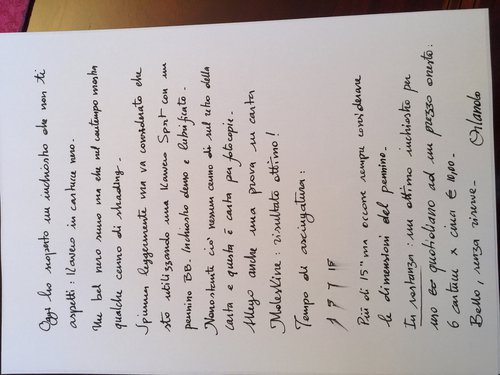 Oggi ho scoperto un inchiostro che non ti
aspetti: Kaweco in cartucce nero.
Un bel nero scuro ma che nel contempo mostra
qualche cenno di shading.
Spiuma leggermente ma va considerato che
sto utilizzando una Kaweco Sport con un
pennino BB. Inchiostro denso e lubrificato.
Nonostante ciò nessun cenno di sul retro della
carta e questa è carta per fotocopie.
Allego anche una prova su carta
Moleskine: risultato ottimo!
Tempo di asciugatura:
1 5 7 15
Più di 15" ma occorre sempre considerare
le dimensioni del pennino.
In sostanza: un ottimo inchiostro per
uso quotidiano ad un prezzo onesto:
6 cartucce x circa € 10,00.
Bello, senza riserve. Orlando